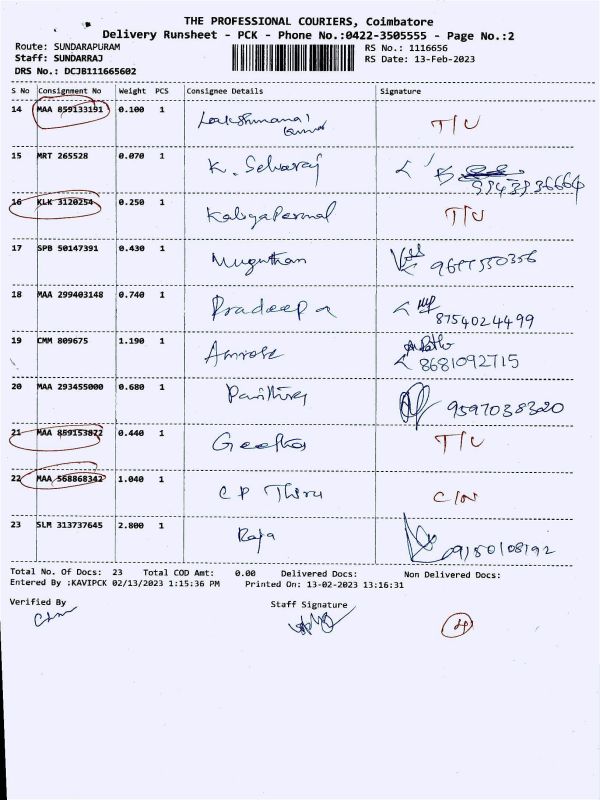 THE PROFESSIONAL COURIERS, Coimbatore
Delivery Runsheet - PCK - Phone No.:0422-3505555 - Page No.:2
Route: SUNDARAPURAM RS No.: 1116656
Staff: SUNDARRAJ RS Date: 13-Feb-2023
DRS No.: DCJB111665602
S No Consignment No Weight PCS Consignee Details Signature
14 MAA 859133191 0.100 1 T/U
15 MRT 265528 0.070 1 K. Selvaraj
16 KLK 3120254 0.250 1 T/U
17 SPB 50147391 0.430 1 Muguthan
18 MAA 299403148 0.740 1 Pradeep 8754024499
19 CMM 809675 1.190 1 8681092715
20 MAA 293455000 0.680 1 9597038320
21 MAA 859153822 0.440 1 Geetha T/U
22 MAA 568868342 1.040 1 C P Thiru
23 SLM 313737645 2.800 1 Raja 09150108192
Total No. Of Docs: 23 Total COD Amt: 0.00 Delivered Docs: Non Delivered Docs:
Entered By :KAVIPCK 02/13/2023 1:15:36 PM Printed On: 13-02-2023 13:16:31
Verified By Staff Signature